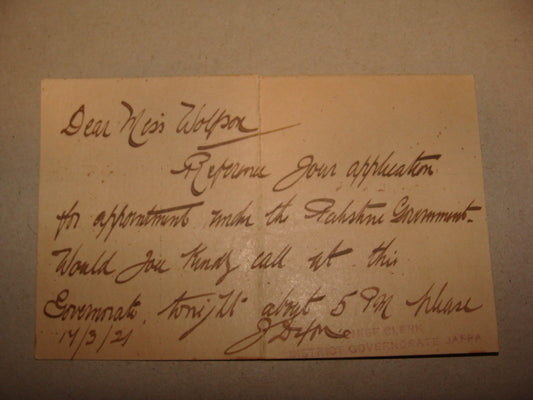 Dear Miss Wolfson
Reference your application
for appointment under the Palestine Government.
Would you kindly call at this
Governorate, tonight about 5 PM please
17/3/21
CLERK
DISTRICT GOVERNORATE JAFFA